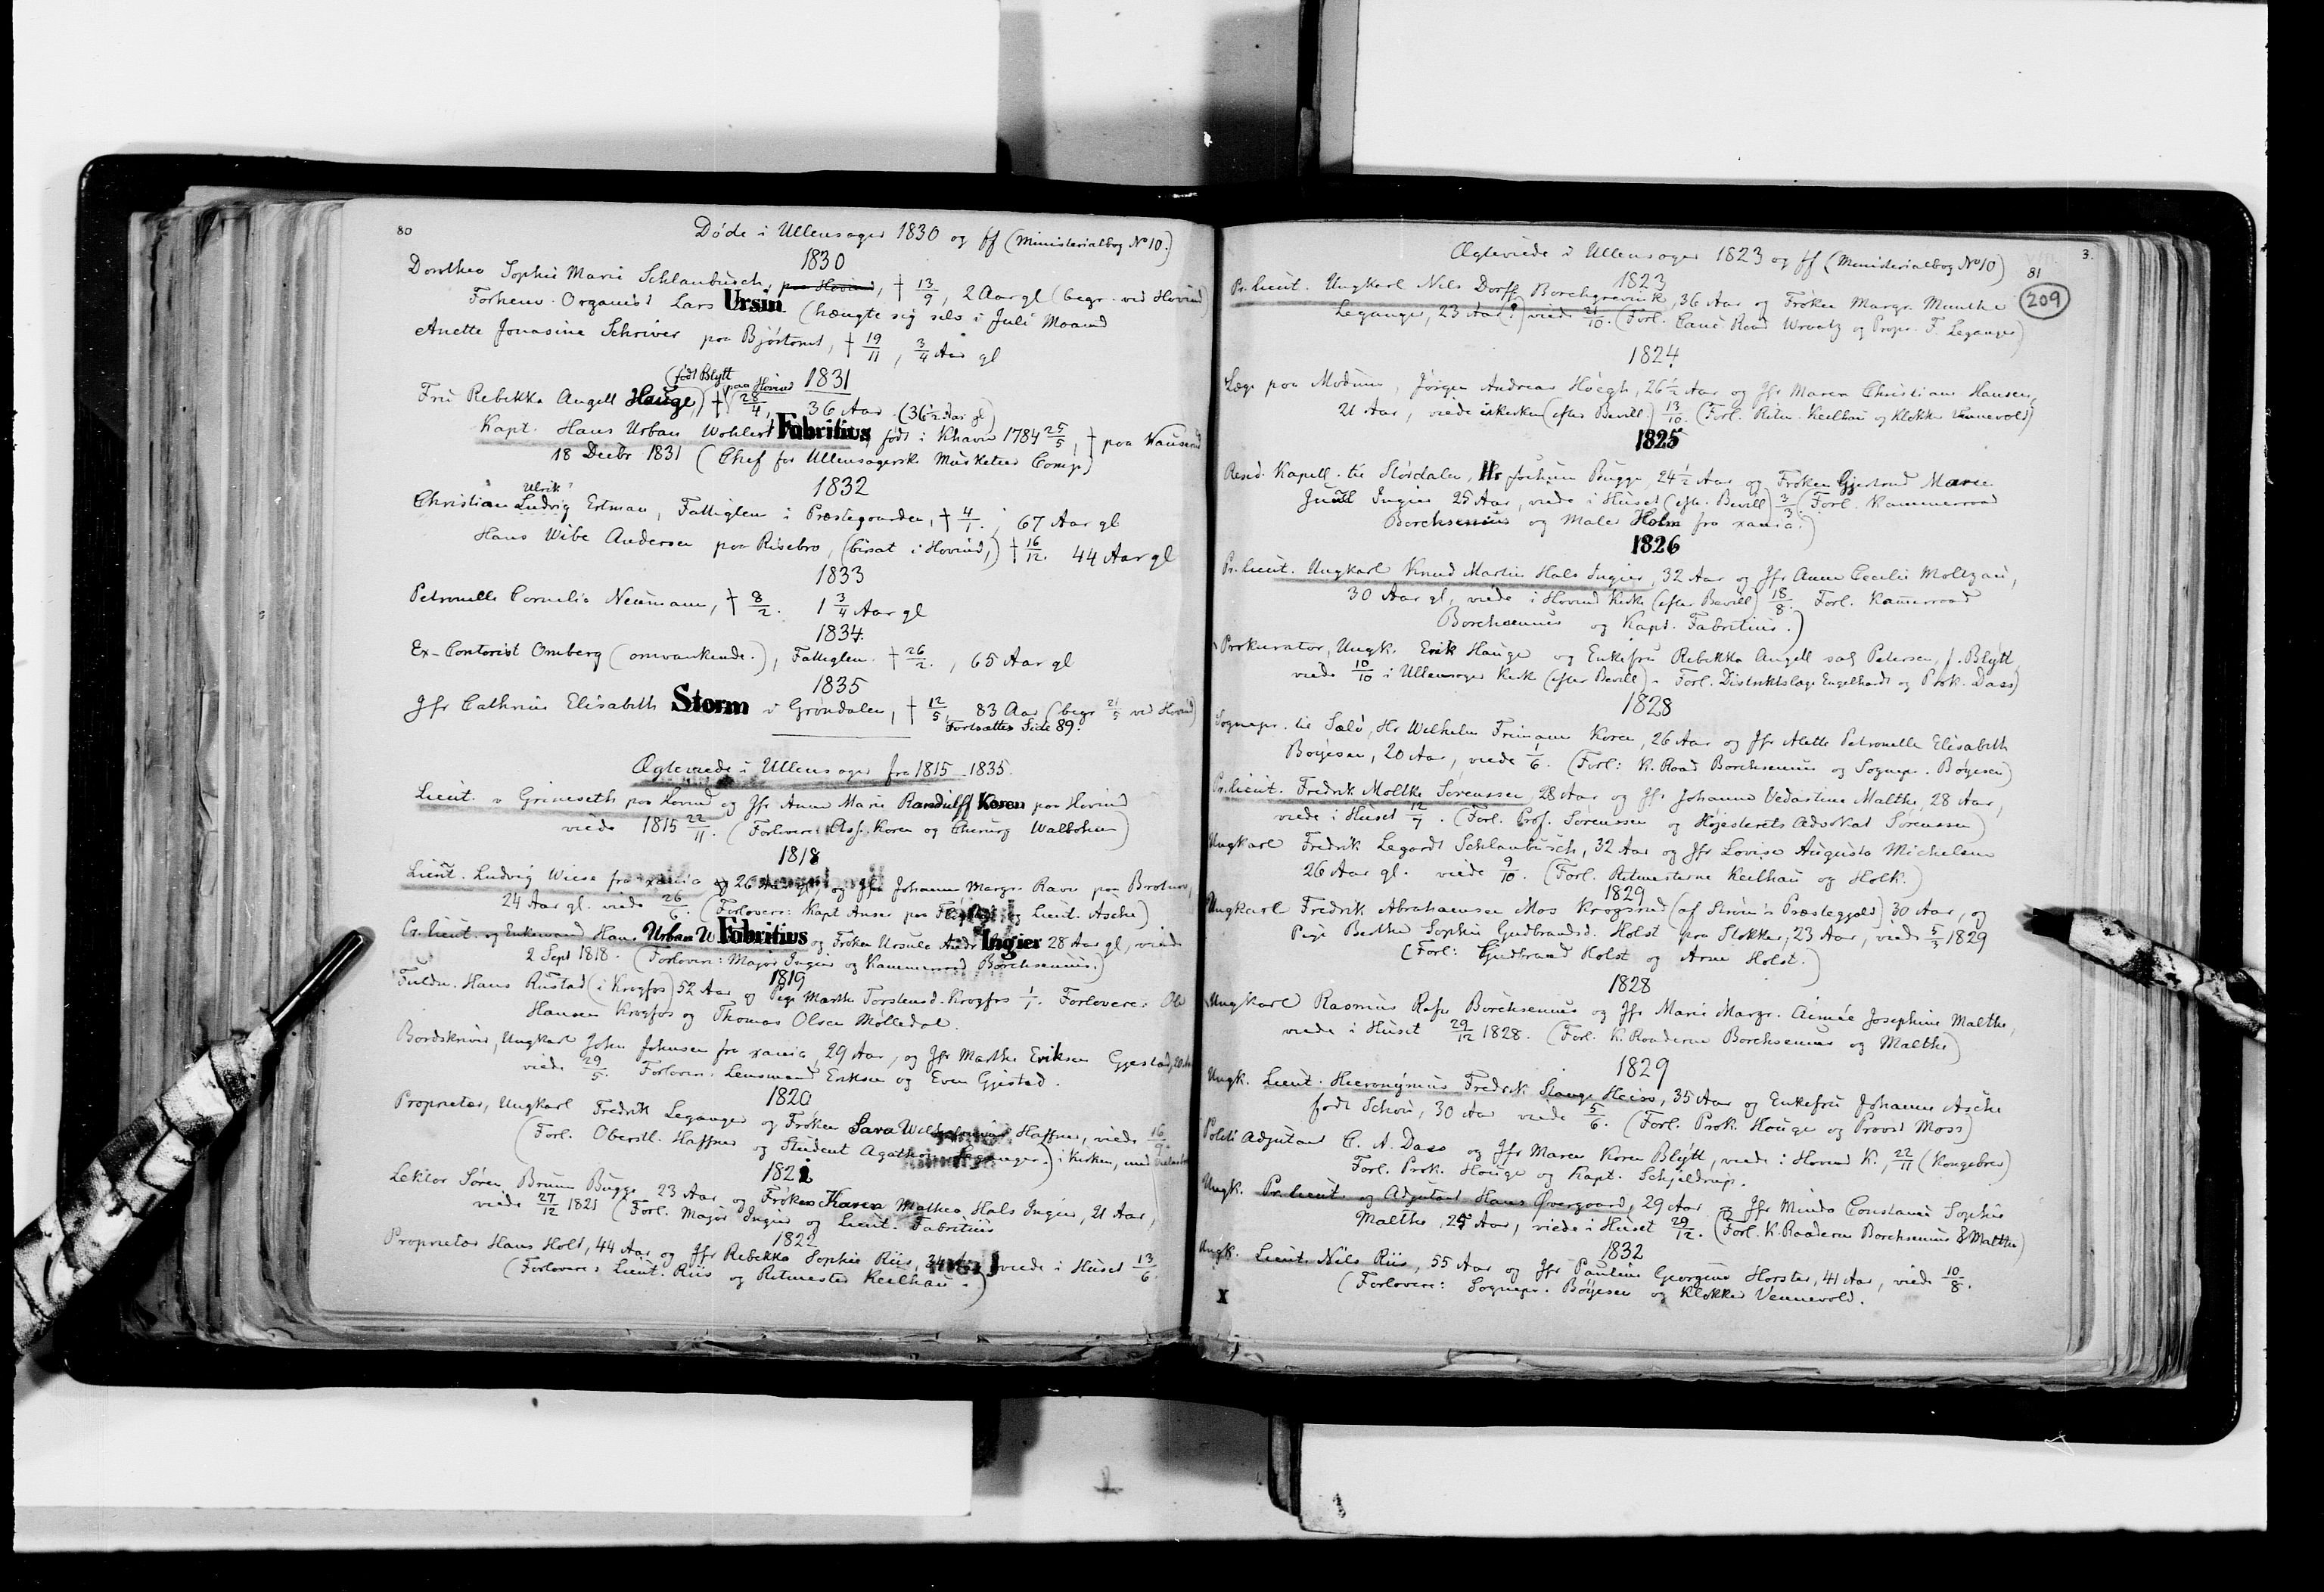 80
Døde i Ullensager 1830 og ff (Ministerialbog No 10.)
1830
Dorothea Sophie Marie Schlanbusch, paa Hovind, † 13/9, 2 Aar gl (begr. ved Hovind)
Forhenv. Organist Lars Ursin (hængte sig selv i Juli Maaned
Anette Jonasine Schriver paa Bjørtomt, † 19/11, 3/4 Aar gl
1831
(født Blytt paa Hovind
Fru Rebekka Angell Hauge,) † 28/4, 36 Aar (36 1/2 Aar gl)
Kapt. Hans Urban Wohlert Fabritius født i Khavn 1784 25/5, † paa
18 Decbr 1831 (Chef for Ullensagerske Musketeer Comp)
1832
Ulrik?
Christian Ludvig Ertman, Fattiglem i Præstegaarden, † 4/1. 67 Aar gl
Hans Wibe Andersen paa Risebro, (bosat i Hovind,) † 16/12. 44 Aar gl
1833
Petronelle Cornelia Neumann, † 8/2. 1 3/4 Aar gl
1834.
Ex-Contorist Omberg (omvankende.), Fattiglem. † 26/2., 65 Aar gl
1835
Jfr Cathrine Elisabeth Storm i Grøndalen, † 12/5, 83 Aar (begr 21/5 ved Hovind)
Fortsættes Side 89.
Ægteviede i Ullensager fra 1815 - 1835.
Lieut. v Grineseth paa Hovind og Jfr Anne Marie Randulff Koren paa Hovind
viede 1815 22/11. (Forlovere: Ass. Koren og Chirurg Walbohm)
1818
Lieut. Ludvig Wiese fra xania 26 Aar gl, og Jfr Johanne Margr. Ravn paa
24 Aar gl. viede 26/6. (Forlovere: Kapt Anker paa og Lieut. Asche)
Pr. lieut. og Enkemand Hans Urban W Fabritius og Frøken Ursule Ingier 28 Aar gl, viede
2 Sept 1818. (Forlovere: Major Ingier og Kammerraad Borchsenius.)
1819
Fuldm. Hans Rustad (i Krogfos) 52 Aar og Pige Marthe Torstensd. Krogfos 1/1. Forlovere: Ole
Hansen Krogfos og Thomas Olsen Mølledal.
Bordskriver, Ungkarl John Johnsen fra xania, 29 Aar, og Jfr Marthe Eriksen Gjestad,
viede 29/5. Forlovere. Lensmand Eriksen og Even Gjestad.
1820
Proprietær, Ungkarl Fredrik Leganger og Frøken Sara Haffner, viede 16/9
(Forl. Oberstl. Haffner og Student Agathon Leganger.) i Kirken, med
1821
Lektor Søren Bruun Bugge, 23 Aar og Frøken Karen Mathea Hals Ingier, 21 Aar,
viede 27/12 1821 (Forl. Major Ingier og Lieut. Fabritius
1822
Proprietær Hans Holt, 44 Aar og Jfr Rebekka Sophie Riis, viede i Huset 13/6.
(Forlovere: Lieut. Riis og Ritmester Keilhau.)
3.
81
209
Ægteviede i Ullensager 1823 og ff (Ministerialbog No 10)
1823
Pr. lieut. Ungkarl Nils Dorff Borchgrevink, 36 Aar og Frøken Margr. Munthe
Leganger, 23 Aar (?) viede 21/10. (Forl. Raad Wraatz og Propr. F. Leganger)
1824
Læge paa Modum, Jørgen Andreas Høegh, 26 1/2 Aar og Jfr Maren Christiane Hansen,
21 Aar, viede i Kirken (efter Bevill.) 13/10 (Forl. Ritm. Keilhau og Klokker Vennevold)
1825
Resid. Kapell. til Størdalen, Hr Jochum Bugge, 24 1/2 Aar og Frøken Gjertrud Marie
Juell Ingier 25 Aar, viede i Huset (efter Bevill) 3/3 (Forl. Kammerraad
Borchsenius og Maler Holm fra xania.)
1826
Pr. lieut. Ungkarl Knud Martin Hals Ingier, 32 Aar og Jfr Anne Cecilie Moltzau,
30 Aar gl, viede i Hovind Kirke (efter Bevill) 18/8. Forl. Kammerraad
Borchsenius og Kapt. Fabritius.)
Prokurator, Ungk. Erik Hauge og Enkefru Rebekka Angell sal. Petersen, f. Blytt,
viede 10/10 i Ullensager Kirke (efter Bevill) - Forl. Distriktslæge Engelhardt og Prok. Dass)
1828
Sognepr. til Sælø, Hr Wilhelm Frimann Koren, 26 Aar og Jfr Alette Petronelle Elisabeth
Bøyesen, 20 Aar, viede 1/6. (Forl: K. Raad Borchsenius og Sognepr. Bøyesen)
Pr. lieut. Fredrik Moltke Sørenssen, 28 Aar og Jfr Johanne Vedastine Malthe, 28 Aar,
viede i Huset 12/7. (Forl. Prof. Sørenssen og Højesterets Advokat Sørenssen)
Ungkarl Fredrik Legardt Schlanbusch, 32 Aar og Jfr Lovise Augusta Michelsen
26 Aar gl. viede 9/10. (Forl. Ritmesterne Keilhau og Holck.)
1829
Ungkarl Fredrik Abrahamsen Mos Krogsrud (af Strøm's Præstegjeld) 30 Aar, og
Pige Berthe Sophie Gudbrandsd. Holst paa Slokker, 23 Aar, viede 5/3 1829
(Forl: Gudbrand Holst og Arne Holst.)
1828
Ungkarl Rasmus Rafn Borchsenius og Jfr Marie Margr. Aimée Josephine Malthe,
viede i Huset 29/12 1828. (Forl. K. Raaderne Borchsenius og Malthe)
1829
Ungk. Lieut. Hieronymus Fredrik Stange Heiss, 35 Aar og Enkefru Johanne Asche
født Schou, 30 Aar viede 5/6. (Forl. Prok. Hauge og Provst Moss)
Politi Adjutant C. A. Dass og Jfr Maren Koren Blytt, viede i Hovind K., 22/11 (Kongebrev)
Forl. Prok. Hauge og Kapt. Schjeldrup.
Ungk. Pr. lieut. og Adjutant Hans Øvergaard, 29 Aar og Jfr Minda Constance Sophie
Malthe, 25 Aar, viede i Huset 29/12. (Forl. K. Raaderne Borchsenius & Malthe)
1832
Ungk. Lieut. Nils Riis, 55 Aar og Jfr Pauline Georgine Horster, 41 Aar, viede 10/8.
(Forlovere: Sognepr. Bøyesen og Klokker Vennevold.
X